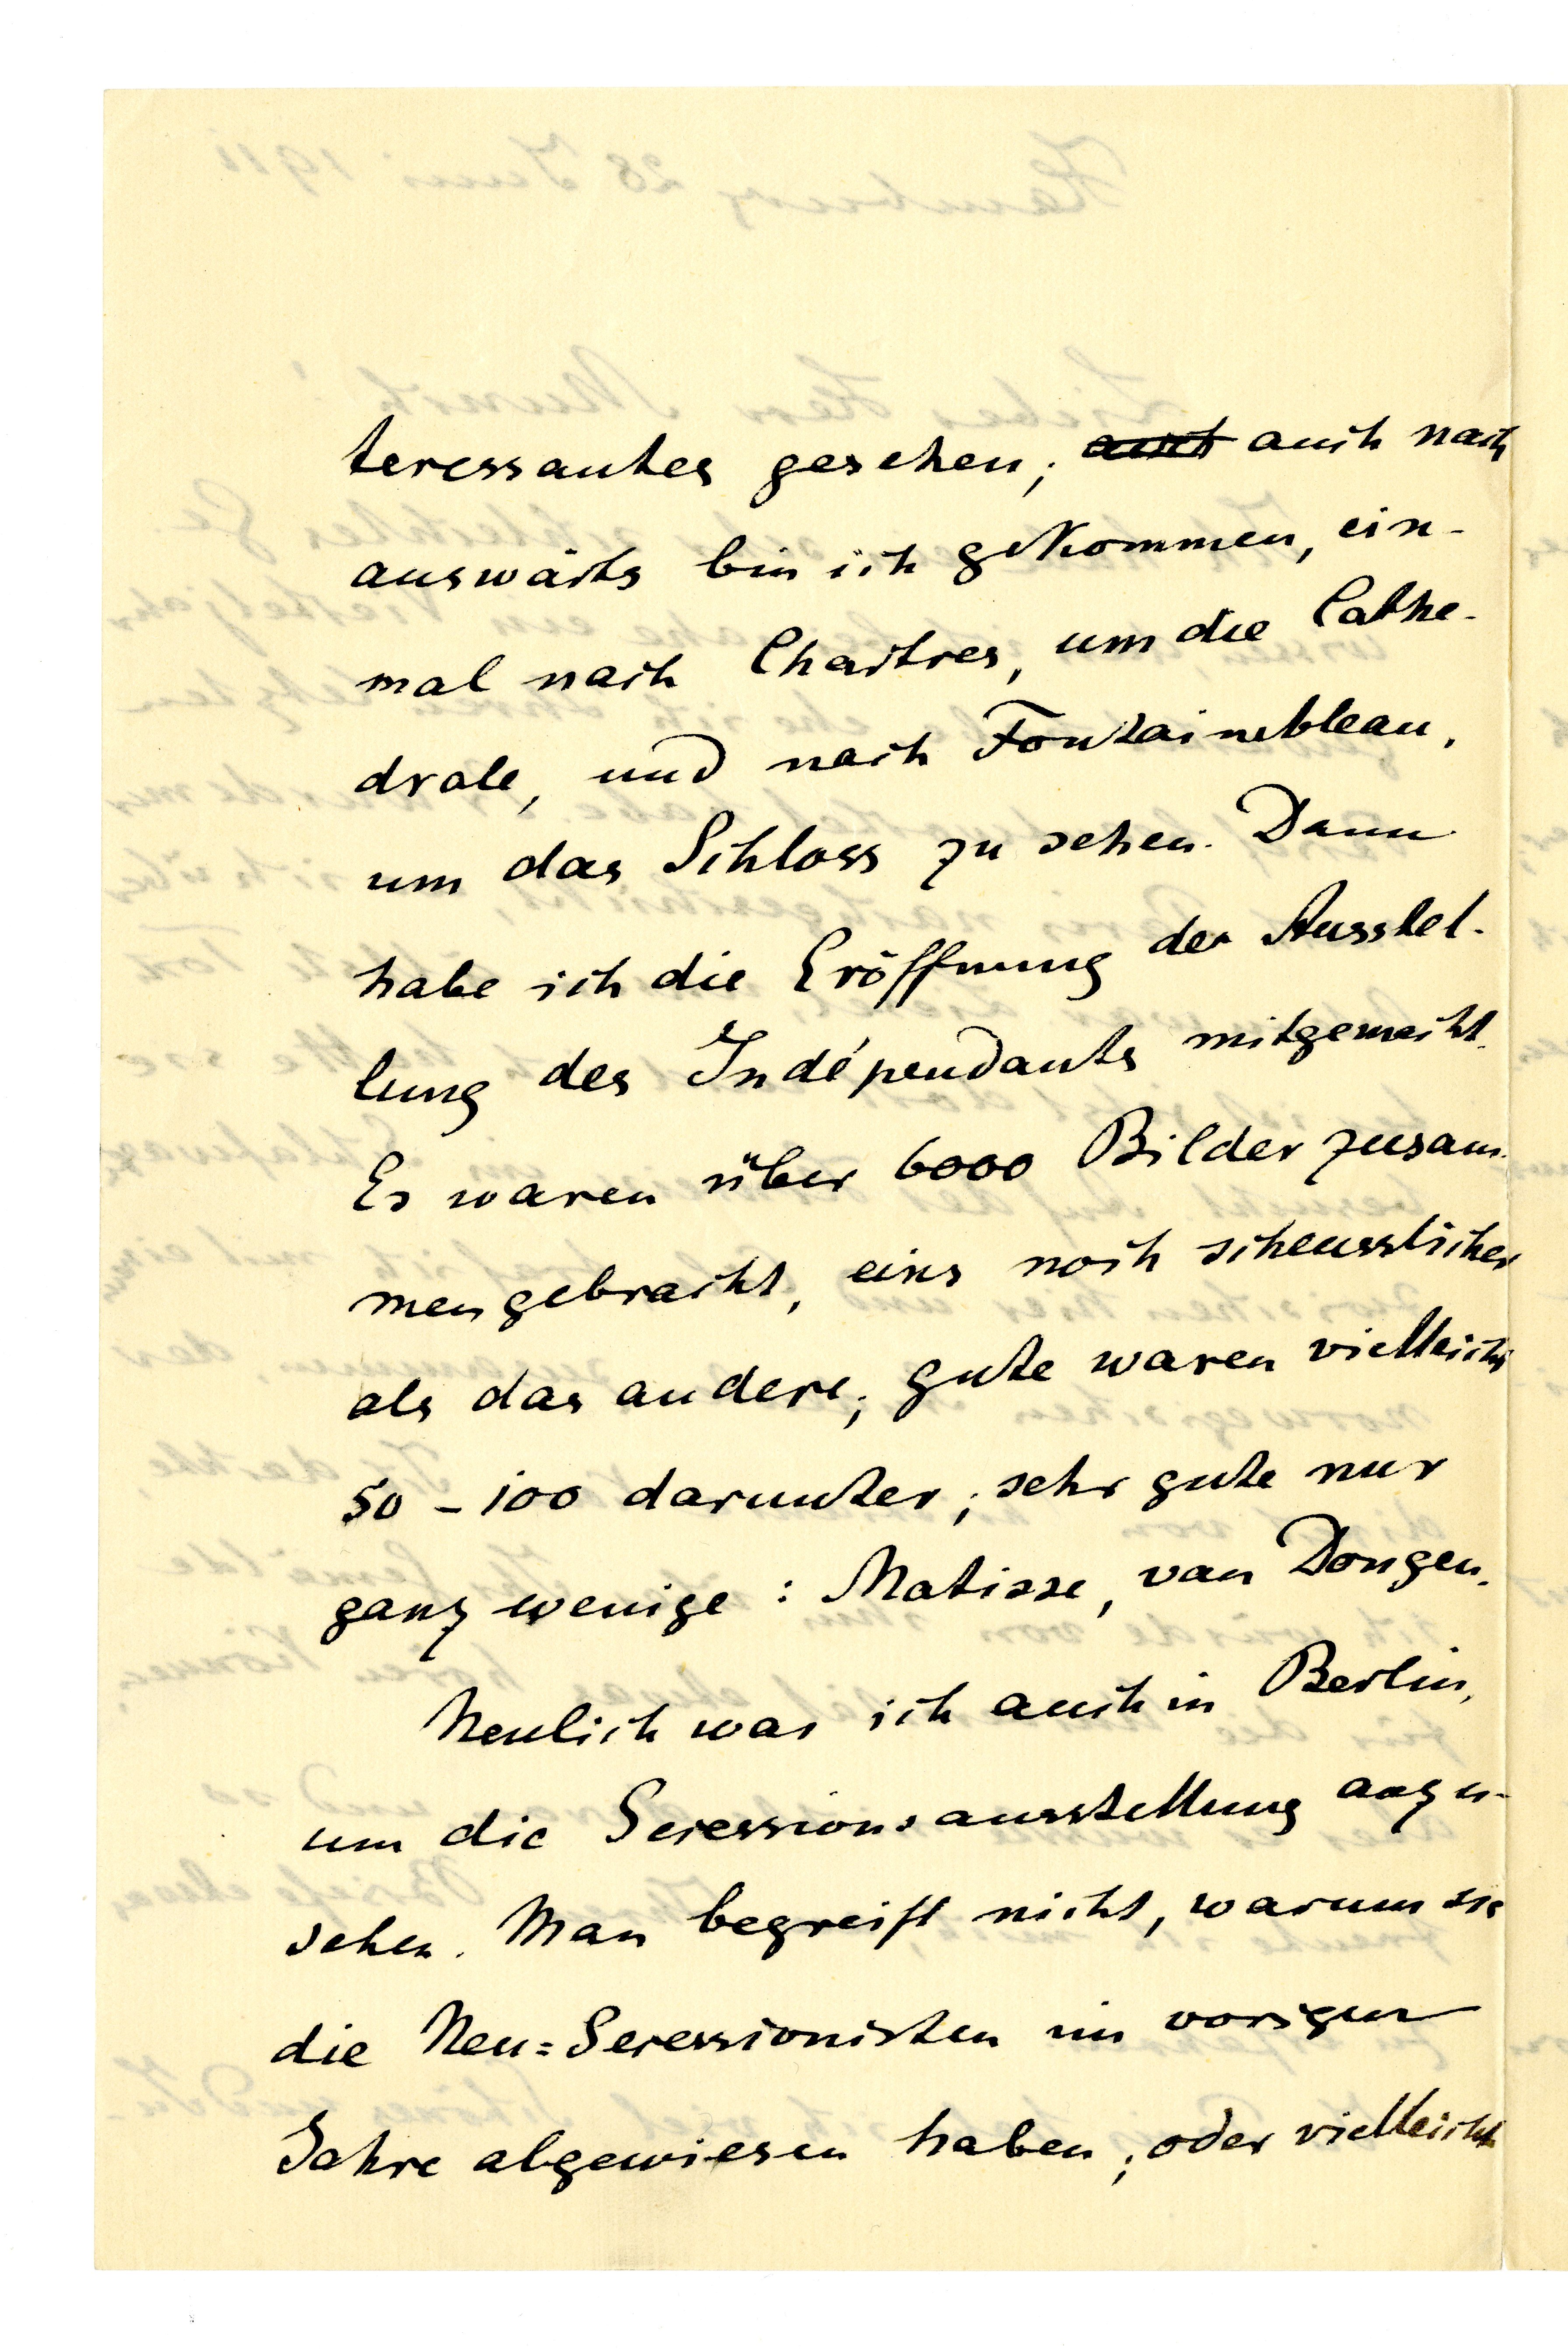 teressantes gesehen; auch auch nach
auswärts bin ich gekommen, ein-
mal nach Chartres, um die Cathe-
drale, und nach Fontainebleau,
um das Schloss zu sehen. Dann
habe ich die Eröffnung der Ausstel-
lung des Indépendants mitgemacht.
Es waren über 6000 Bilder zusam-
mengebracht, eins noch scheusslicher
als das andere; gute waren vielleicht
50 - 100 darunter; sehr gute nur
ganz wenige: Matisse, van Dongen.
Neulich war ich auch in Berlin,
um die Secessionsausstellung anzu-
sehen. Man begreift nicht, warum sie
die Neu=Secessionisten im vorigen
Jahre abgewiesen haben; oder vielleicht